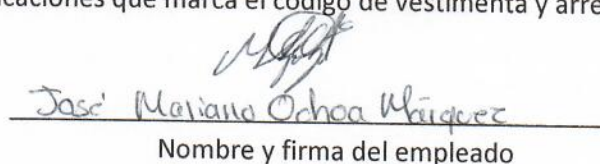 caciones que marca el código de vestimenta y arre
José Mariano Ochoa Márquez
Nombre y firma del empleado